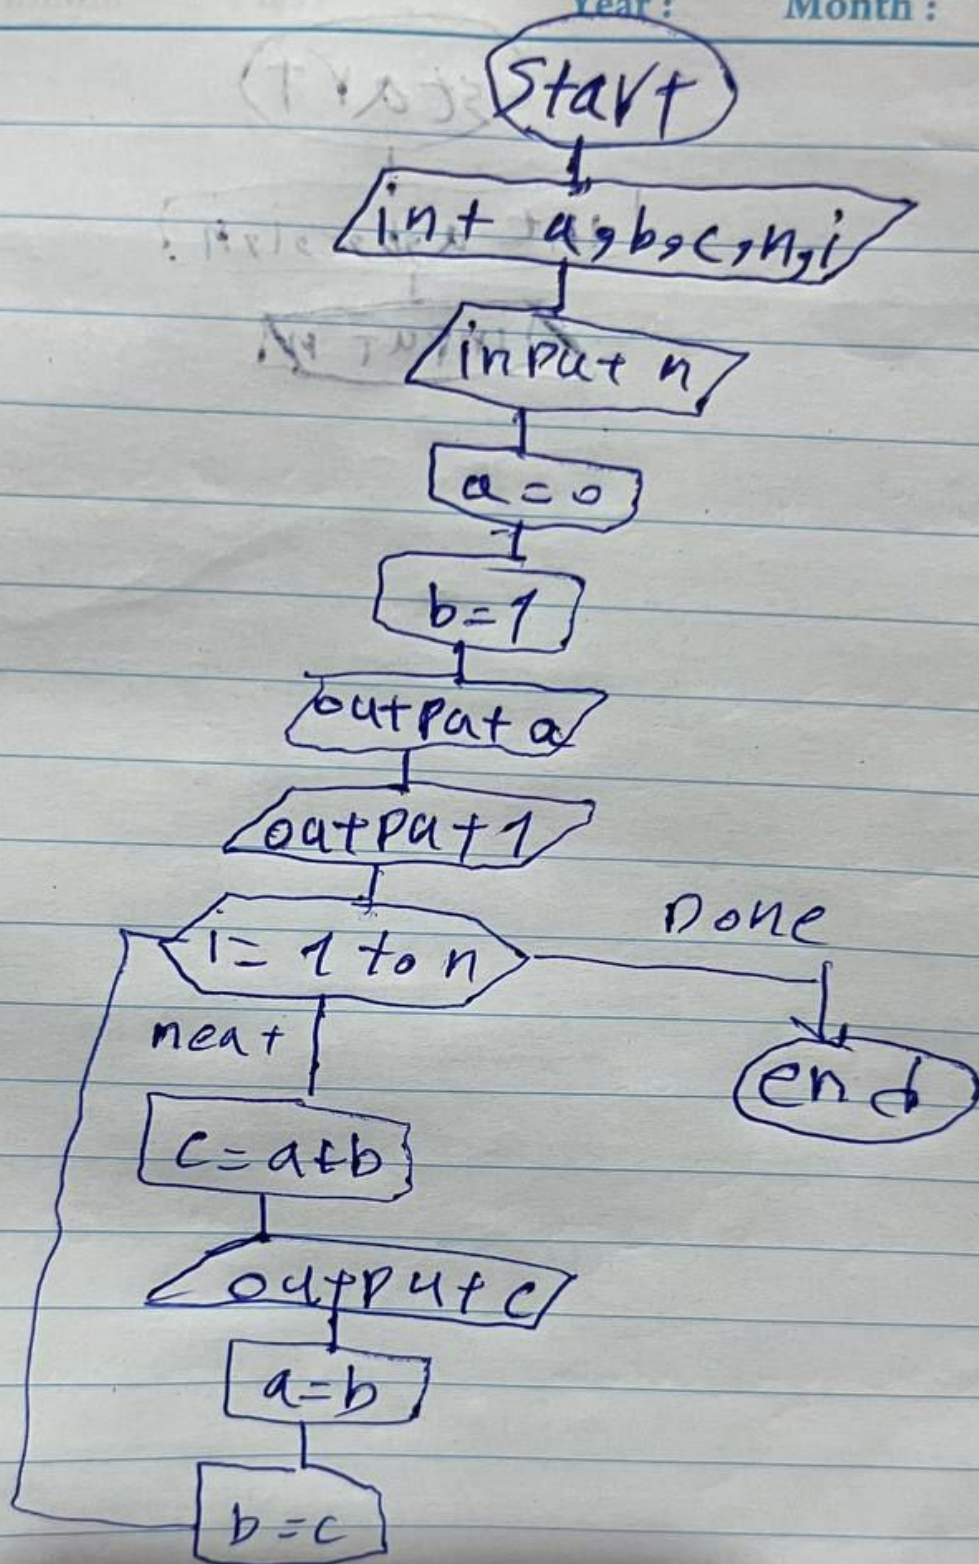 Year : Month :
Start
int a,b,c,n,i
input n
a=0
b=1
output a
output 1
i= 1 to n
Done
next
end
c=a+b
output c
a=b
b=c